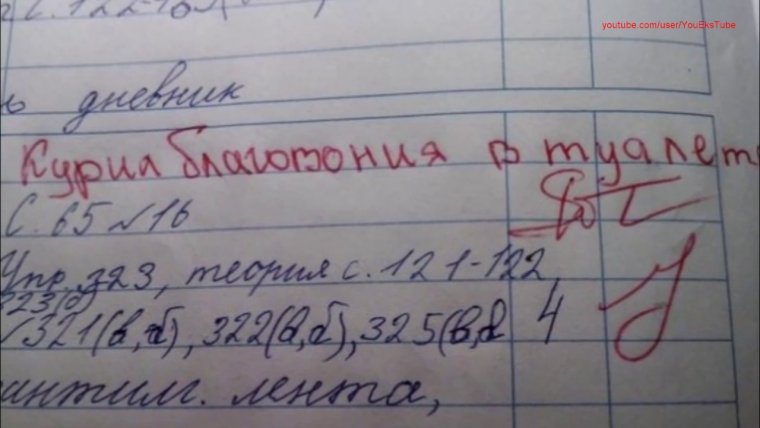 youtube.com/user/YouEksTube
с. 122-
дневник
Курил благовония в туалет
С. 65 №16
Упр. 323, теория с. 121-122,
323(б)
321(в,д), 322(в,д), 325(в,д
4
лента,